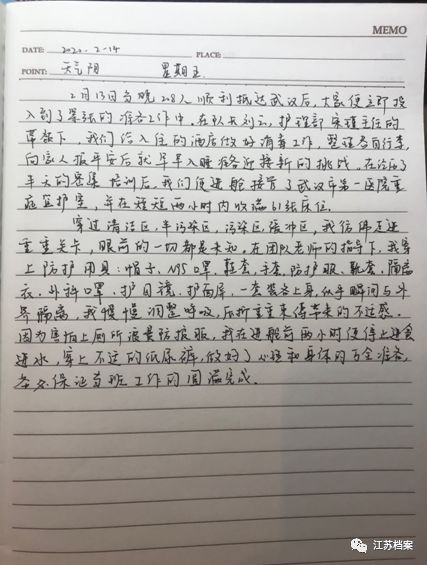 MEMO
DATE: 2020-2-14 PLACE:
POINT: 天气阴 星期五
2月13日当晚,28人顺利抵达武汉后,大家便立即投
入到了紧张的准备工作中,在队长刘云,护理部 主任的
带领下,我们给入住的酒店做好消毒工作,整理各自行李,
向家人报平安后就早早入睡,准备迎接新的挑战。在经历了
半天的密集培训后,我们便进舱接管了武汉市第一医院重
症监护室,并在短短两小时内收满61张床位。
穿过清洁区,半污染区,污染区,缓冲区,我仿佛走进
重重关卡,眼前的一切都是未知。在团队老师的指导下,我穿
上防护用具:帽子、N95口罩、鞋套、手套、防护服、靴套、隔离
衣、外科口罩、护目镜、护面屏,一套装备上身,似乎瞬间与外
界隔离,我慢慢调整呼吸,后 重重束缚带来的不适感。
因为害怕上厕所浪费防护服,我在进舱前两小时便停止进食
进水,穿上不透的纸尿裤,做好了心理和身体的万全准备,
务必保证当班工作的圆满完成。
江苏档案